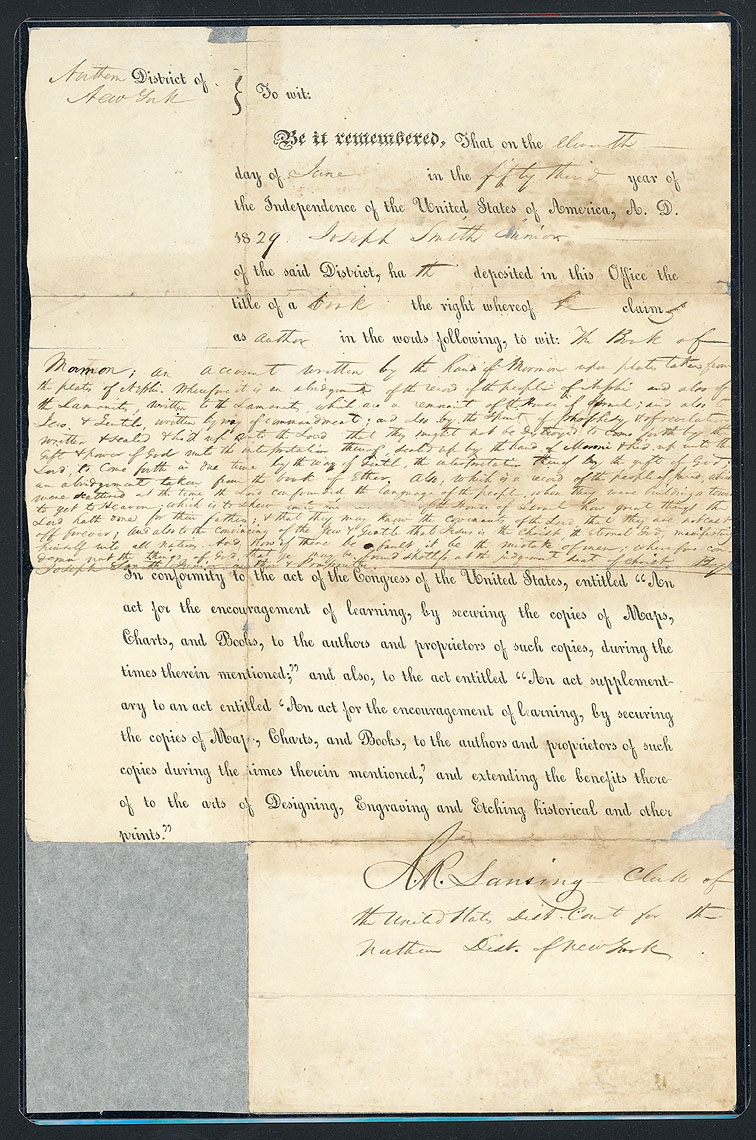 Northern District of
New York
} To wit:
Be it remembered, That on the eleventh
day of June in the fifty third year of
the Independence of the United States of America, A. D.
1829 Joseph Smith Junior
of the said District, ha th deposited in this Office the
title of a book the right whereof he claims
as author in the words following, to wit: The Book of
Mormon; an account written by the hand of Mormon upon plates taken from
the plates of Nephi. Wherefore it is an abridgment of the record of the people of Nephi and also of
the Lamanites, written to the Lamanites, which are a remnant of the House of Israel; and also to
Jews & Gentile, written by way of commandment; and also by the Spirit of Prophesy & of revelation
written & sealed & hid up unto the Lord that they might not be destroyed to come forth by the
gift & power of God unto the interpretation thereof, sealed up by the hand of Moroni & hid up unto the
Lord, to come forth in due time by the way of Gentile, the interpretation thereof by the gift of God;
an abridgment taken from the book of Ether. Also, which is a record of the people of Jared, which
were scattered at the time the Lord confounded the language of the people when they were building a tower
to get to Heaven, which is to shew unto the House of Israel how great things the
Lord hath done for their fathers; & that they may know the covenants of the Lord that they are not cast
off forever; and also to the convincing of the Jew & Gentile that Jesus is the Christ, the eternal God, manifesting
himself unto all nations. And now if there be a fault it be the mistake of men; wherefore con
demn not the things of God, that ye may be found spotless at the judgment seat of Christ. By
Joseph Smith Junior author & Proprietor
In conformity to the act of the Congress of the United States, entitled “An
act for the encouragement of learning, by securing the copies of Maps,
Charts, and Books, to the authors and proprietors of such copies, during the
times therein mentioned;” and also, to the act entitled “An act supplement-
ary to an act entitled ‘An act for the encouragement of learning, by securing
the copies of Maps, Charts, and Books, to the authors and proprietors of such
copies during the times therein mentioned,’ and extending the benefits there-
of to the arts of Designing, Engraving and Etching historical and other
prints.”
A.R. Lansing Clerk of
the United States Dist. Court for the
Northern Dist. of New York.